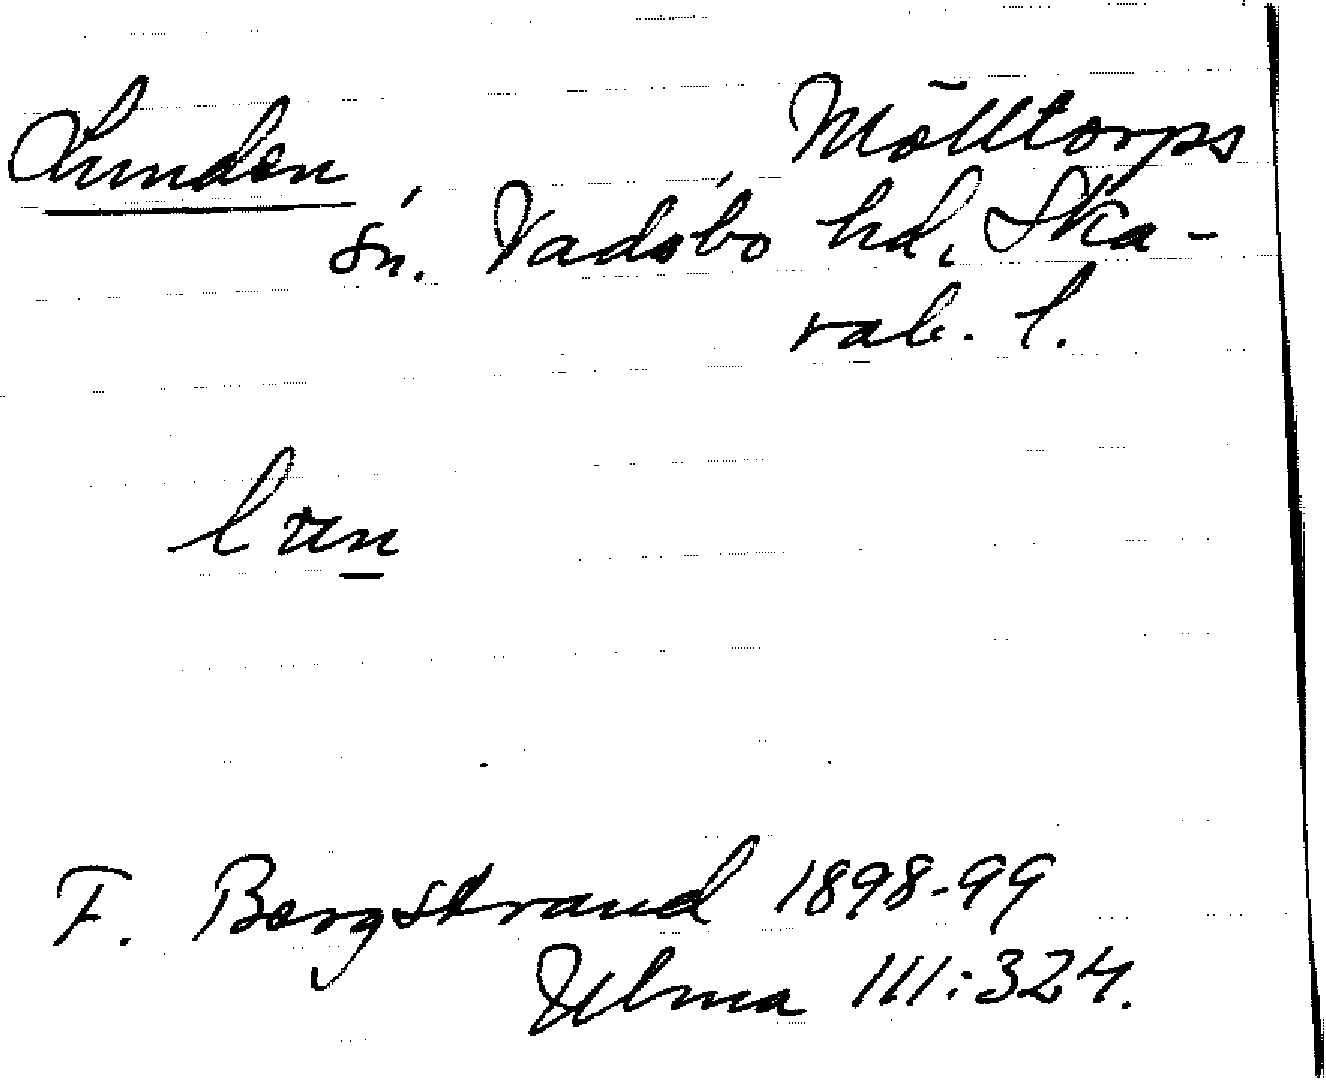 Lunden Mölltorps
sn. Vadsbo hd, Ska-
rab. l.
F. Bergstrand 1898-99
Ulma III:324.